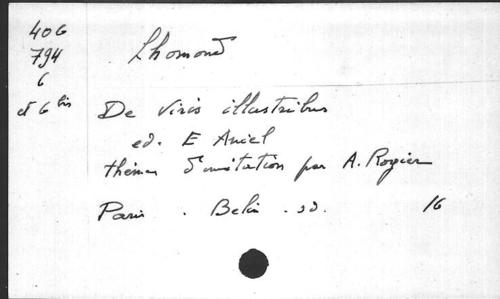 40G
794
6
et 6 bis
Lhomond
De Viris illustribus
ed. E Aniel
thèmes d'imitation par A. Rogier
Paris . Belin . sd. 16